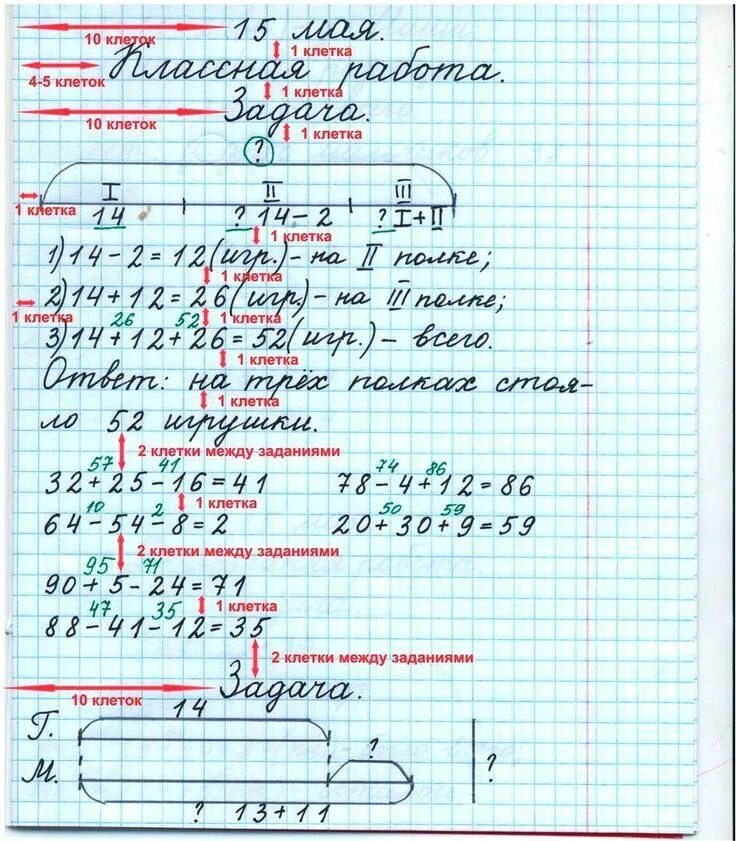 15 мая.
10 клеток
1 клетка
Классная работа.
4-5 клеток
1 клетка
Задача.
10 клеток
1 клетка
?
I II III
1 клетка
14 ? 14-2 ? I+II
1 клетка
1) 14-2=12 (игр.) - на II полке;
1 клетка
2) 14+12=26 (игр.) - на III полке;
1 клетка
1 клетка
26 52
3) 14+12+26=52 (игр.) - всего.
1 клетка
Ответ: на трёх полках стоя-
1 клетка
ло 52 игрушки.
2 клетки между заданиями
57 41 74 86
32+25-16=41 78-4+12=86
1 клетка
10 2 50 59
64-54-8=2 20+30+9=59
2 клетки между заданиями
95 71
90+5-24=71
1 клетка
47 35
88-41-12=35
2 клетки между заданиями
Задача.
10 клеток
14
Г.
?
М. ?
? 13+11